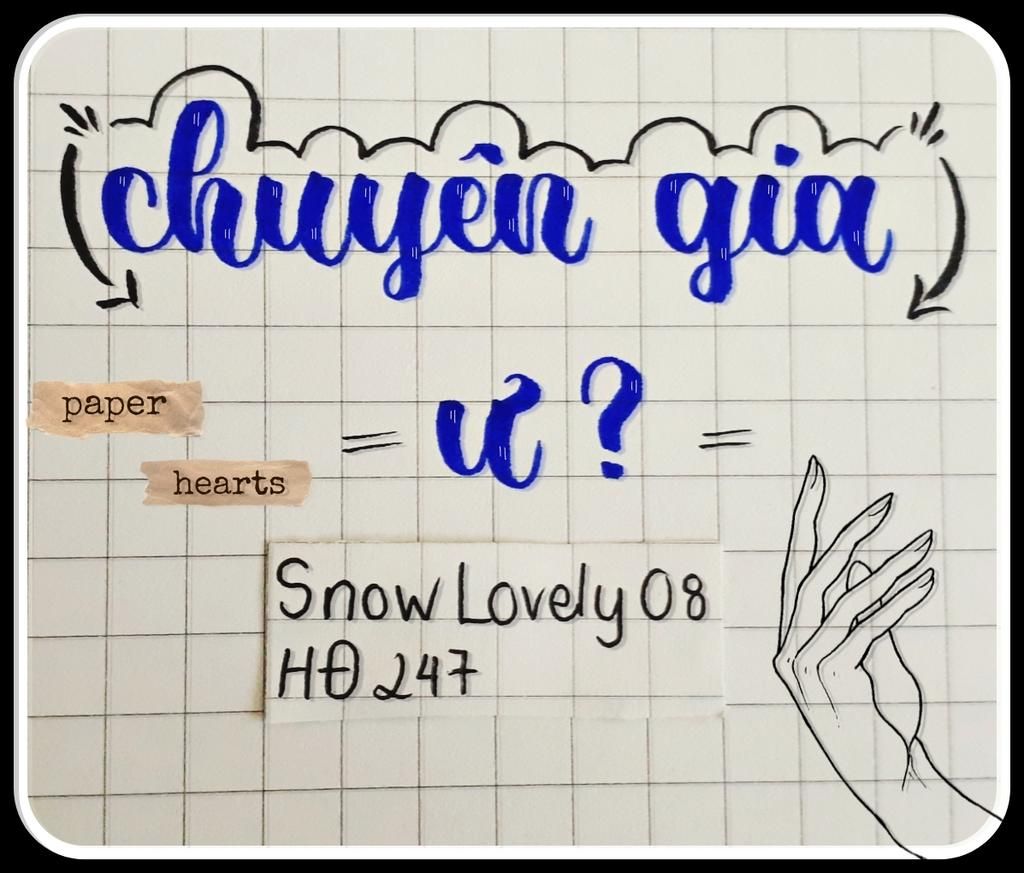 chuyên gia
paper
= ư ? =
hearts
Snow Lovely 08
HĐ 247